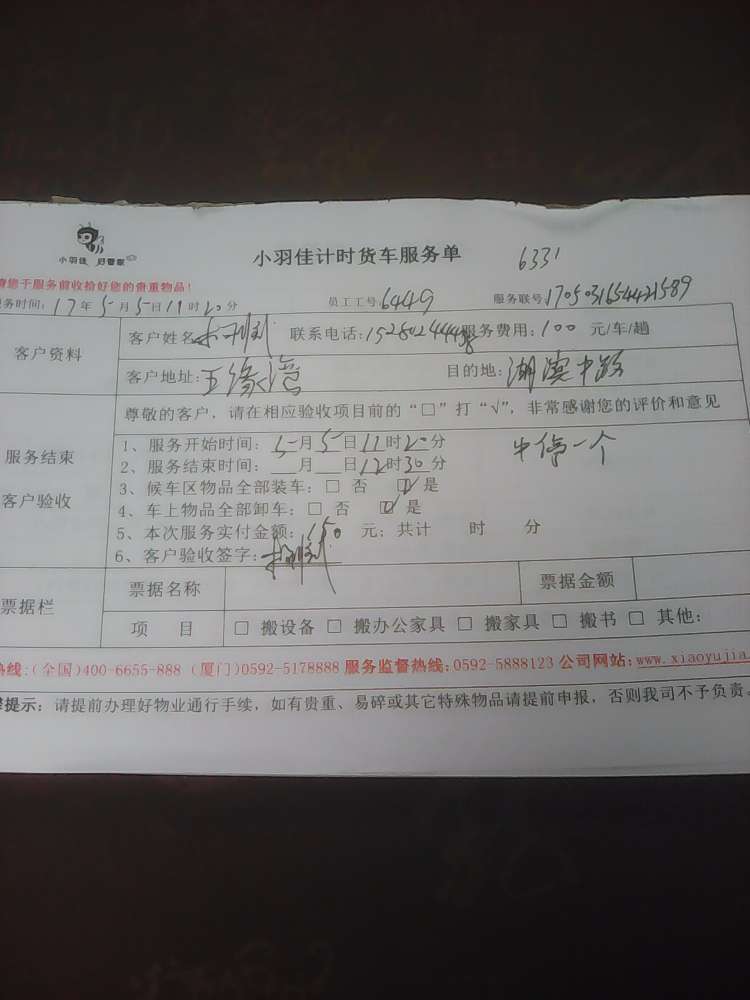 小羽佳 好管家
小羽佳计时货车服务单 6331
请您于服务前收拾好您的贵重物品!
务时间: 17年5月5日11时20分 员工工号 6449 服务联号
客户资料 客户姓名 联系电话: 服务费用: 100 元/车/趟
客户地址: 五缘湾 目的地: 湖滨中路
尊敬的客户, 请在相应验收项目前的 “□” 打 “√”, 非常感谢您的评价和意见
服务结束
客户验收
1、服务开始时间: 5月5日11时20分 中停一个
2、服务结束时间: 月 日12时30分
3、候车区物品全部装车: □ 否 ☑ 是
4、车上物品全部卸车: □ 否 ☑ 是
5、本次服务实付金额: 150 元; 共计 时 分
6、客户验收签字:
票据栏 票据名称 票据金额
项 目 □ 搬设备 □ 搬办公家具 □ 搬家具 □ 搬书 □ 其他:
热线: (全国)400-6655-888 (厦门)0592-5178888 服务监督热线: 0592-5888123 公司网站: www.xiaoyujia.
提示: 请提前办理好物业通行手续, 如有贵重、易碎或其它特殊物品请提前申报, 否则我司不予负责。